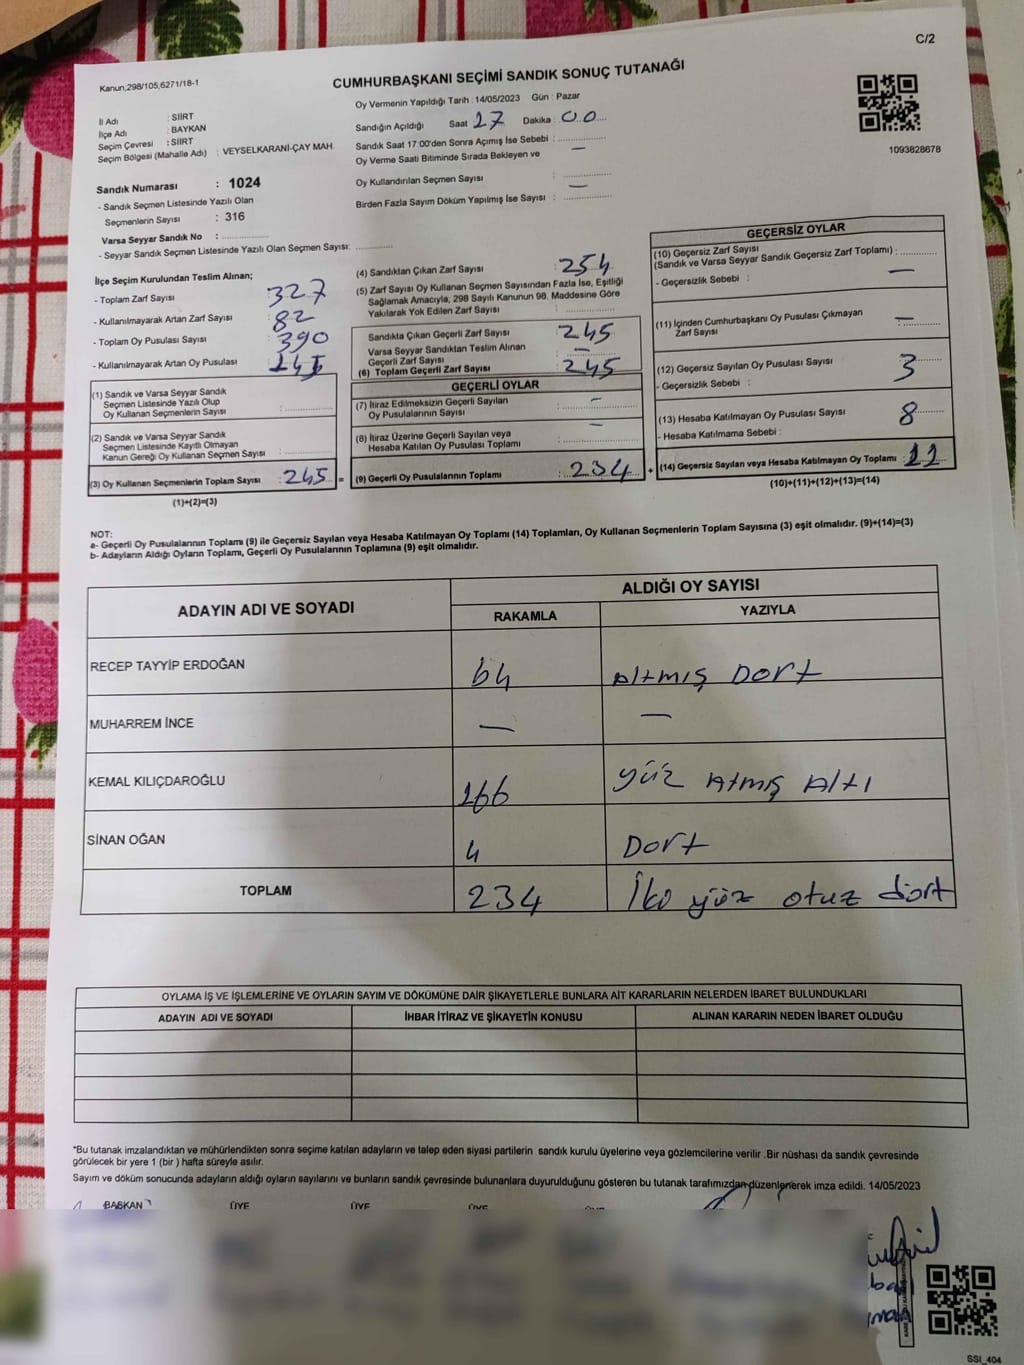 C/2
Kanun,298/105,6271/18-1
CUMHURBAŞKANI SEÇİMİ SANDIK SONUÇ TUTANAĞI
İl Adı : SİİRT
İlçe Adı : BAYKAN
Seçim Çevresi : SİİRT
Seçim Bölgesi (Mahalle Adı) : VEYSELKARANİ-ÇAY MAH.
Sandık Numarası : 1024
- Sandık Seçmen Listesinde Yazılı Olan
Seçmenlerin Sayısı : 316
Varsa Seyyar Sandık No :
- Seyyar Sandık Seçmen Listesinde Yazılı Olan Seçmen Sayısı:
Oy Vermenin Yapıldığı Tarih : 14/05/2023 Gün : Pazar
Sandığın Açıldığı Saat 17 Dakika : 00
Sandık Saat 17:00'den Sonra Açımış İse Sebebi :
Oy Verme Saati Bitiminde Sırada Bekleyen ve —
Oy Kullandırılan Seçmen Sayısı :
Birden Fazla Sayım Döküm Yapılmış İse Sayısı : —
1093828678
İlçe Seçim Kurulundan Teslim Alınan;
- Toplam Zarf Sayısı : 327
- Kullanılmayarak Artan Zarf Sayısı : 82
- Toplam Oy Pusulası Sayısı : 390
- Kullanılmayarak Artan Oy Pusulası :
(1) Sandık ve Varsa Seyyar Sandık
Seçmen Listesinde Yazılı Olup
Oy Kullanan Seçmenlerin Sayısı :
(2) Sandık ve Varsa Seyyar Sandık
Seçmen Listesinde Kayıtlı Olmayan
Kanun Gereği Oy Kullanan Seçmen Sayısı :
(3) Oy Kullanan Seçmenlerin Toplam Sayısı : 245 =
(1)+(2)=(3)
(4) Sandıktan Çıkan Zarf Sayısı : 254
(5) Zarf Sayısı Oy Kullanan Seçmen Sayısından Fazla İse, Eşitliği
Sağlamak Amacıyla; 298 Sayılı Kanunun 98. Maddesine Göre
Yakılarak Yok Edilen Zarf Sayısı :
Sandıkta Çıkan Geçerli Zarf Sayısı : 245
Varsa Seyyar Sandıktan Teslim Alınan
Geçerli Zarf Sayısı : —
(6) Toplam Geçerli Zarf Sayısı : 245
GEÇERLİ OYLAR
(7) İtiraz Edilmeksizin Geçerli Sayılan
Oy Pusulalarının Sayısı : —
(8) İtiraz Üzerine Geçerli Sayılan veya
Hesaba Katılan Oy Pusulası Toplamı : —
(9) Geçerli Oy Pusulalarının Toplamı : 234 +
GEÇERSİZ OYLAR
(10) Geçersiz Zarf Sayısı
(Sandık ve Varsa Seyyar Sandık Geçersiz Zarf Toplamı) :
- Geçersizlik Sebebi : —
(11) İçinden Cumhurbaşkanı Oy Pusulası Çıkmayan
Zarf Sayısı : —
(12) Geçersiz Sayılan Oy Pusulası Sayısı : 3
- Geçersizlik Sebebi :
(13) Hesaba Katılmayan Oy Pusulası Sayısı : 8
- Hesaba Katılmama Sebebi :
(14) Geçersiz Sayılan veya Hesaba Katılmayan Oy Toplamı : 11
(10)+(11)+(12)+(13)=(14)
NOT:
a- Geçerli Oy Pusulalarının Toplamı (9) ile Geçersiz Sayılan veya Hesaba Katılmayan Oy Toplamı (14) Toplamları, Oy Kullanan Seçmenlerin Toplam Sayısına (3) eşit olmalıdır. (9)+(14)=(3)
b- Adayların Aldığı Oyların Toplamı, Geçerli Oy Pusulalarının Toplamına (9) eşit olmalıdır.
ADAYIN ADI VE SOYADI
ALDIĞI OY SAYISI
RAKAMLA YAZIYLA
RECEP TAYYİP ERDOĞAN 64 Altmış Dort
MUHARREM İNCE — —
KEMAL KILIÇDAROĞLU 166 yüz Atmış Altı
SİNAN OĞAN 4 Dort
TOPLAM 234 İki yüz otuz dört
OYLAMA İŞ VE İŞLEMLERİNE VE OYLARIN SAYIM VE DÖKÜMÜNE DAİR ŞİKAYETLERLE BUNLARA AİT KARARLARIN NELERDEN İBARET BULUNDUKLARI
ADAYIN ADI VE SOYADI İHBAR İTİRAZ VE ŞİKAYETİN KONUSU ALINAN KARARIN NEDEN İBARET OLDUĞU
*Bu tutanak imzalandıktan ve mühürlendikten sonra seçime katılan adayların ve talep eden siyasi partilerin sandık kurulu üyelerine veya gözlemcilerine verilir .Bir nüshası da sandık çevresinde
görülecek bir yere 1 (bir ) hafta süreyle asılır.
Sayım ve döküm sonucunda adayların aldığı oyların sayılarını ve bunların sandık çevresinde bulunanlara duyurulduğunu gösteren bu tutanak tarafımızdan düzenlenerek imza edildi. 14/05/2023
BAŞKAN ÜYE ÜYE ÜYE
SSI_404